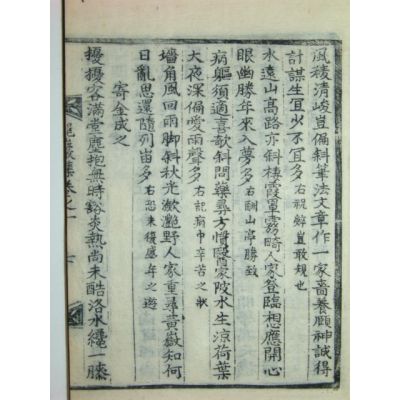 風稜清峻豈偏斜筆法文章作一家畜養頤神誠得
計謀生冝少不冝多右祝辭豈敢規也
水遠山高路亦斜棲霞罩霧畸人家登臨想應開心
眼幽勝年來入夢多右酬山亭勝致
病軀須適喜歌斜問藥尋方惜醫家陂水生凉荷葉
大夜深偏愛雨聲多右記病中辛苦之狀
墻角風回雨脚斜秋光瀲灧野人家重尋黃嶽知何
日亂思還隨列岫多右恐未復應年之遊
寄金成之
擾擾客滿堂塵抱無時豁炎熱尚未酷洛水繩一
集卷之一